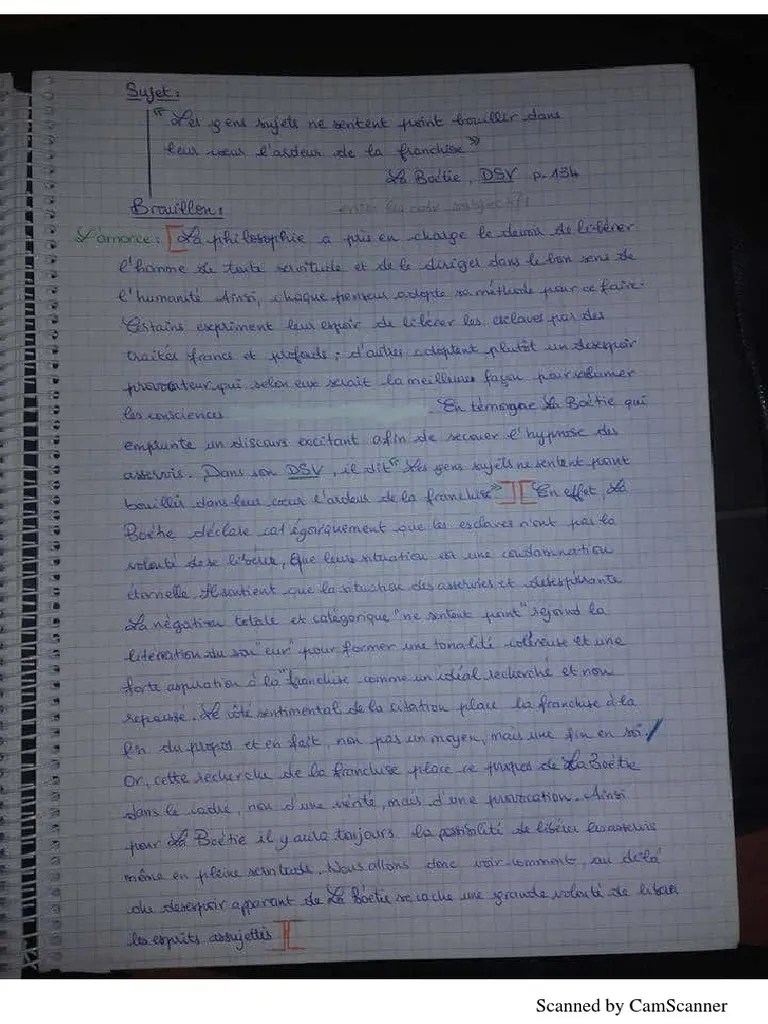 Sujet :
"Les gens sujets ne sentent point bouiller dans
leur cœur l'ardeur de la franchise"
La Boétie, DSV p.134
Brouillon :
L'amorce : [La philosophie a pris en charge le devoir de libérer
l'homme de toute servitude et de le diriger dans le bon sens de
l'humanité Ainsi, chaque penseur adopte sa méthode pour ce faire.
Certains expriment leur espoir de libérer les esclaves par des
traités francs et profonds ; d'autres adoptent plutôt un desespoir
provocateur qui selon eux serait la meilleure façon pour alumer
les consciences En témoigne La Boétie qui
emprunte un discours excitant afin de secouer l'hypnose des
asservis. Dans son DSV, il dit "Les gens sujets ne sentent point
bouillir dans leur cœur l'ardeur de la franchise"] [En effet, La
Boétie déclare catégoriquement que les esclaves n'ont pas la
volonté de se libérer, Que leur situation est une condamnation
éternelle. Il soutient que la situation des asservies et desespérante
La négation totale et catégorique "ne sentent point" rejoind la
literration du son "eur" pour former une tonalité colèreuse et une
forte aspiration à la "franchise comme un idéal recherché et non
repoussé. Le côté sentimental de la citation place la franchise à la
fin du propos et en fait, non pas un moyen, mais une fin en soi /
Or, cette recherche de la franchise place ce propos de La Boétie
dans le cadre, non d'une vérité, mais d'une provocation. Ainsi
pour La Boétie il y aura toujours la possibilité de libérer les asservis
même en pleine servitude. Nous allons donc voir comment, au delà
du desespoir apparant de La Boétie se cache une grande volonté de libérer
les esprits assujettis ][
Scanned by CamScanner